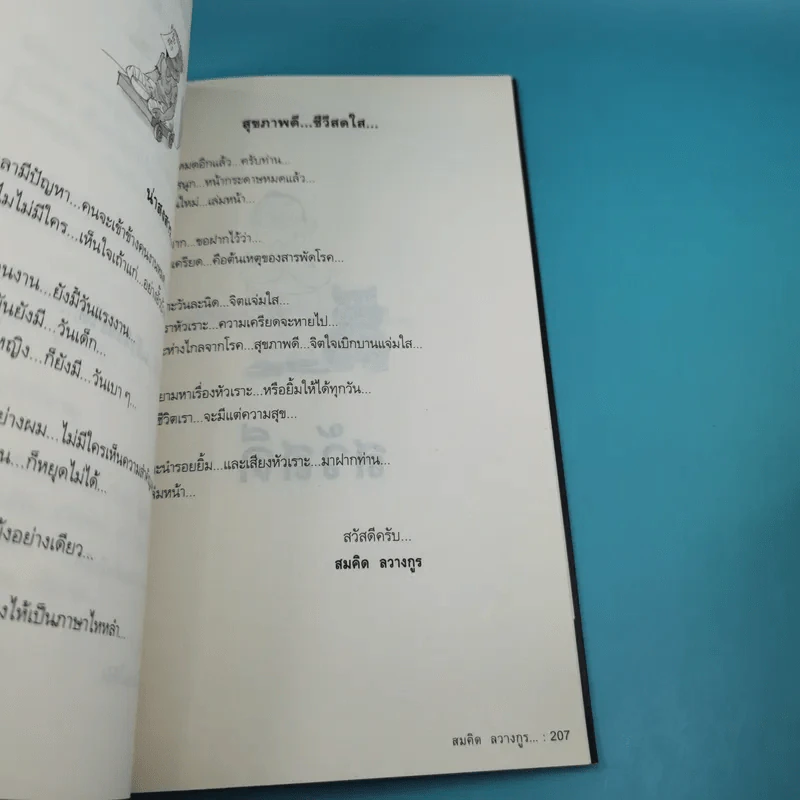 ลามีปัญหา...คนจะเข้าข้าง
ไมไม่มีใคร...เห็นใจเถ้าแก่...
นงาน...ยังมีวันแรงงาน...
ยังมี...วันเด็ก...
หญิง...ก็ยังมี...วันเบา ๆ...
ย่างผม...ไม่มีใครเห็นความ
น...ก็หยุดไม่ได้...
อย่างเดียว...
งไห้เป็นภาษาไหหลำ...
สุขภาพดี...ชีวีสดใส...
หมดอีกแล้ว...ครับท่าน...
สนุก...หน้ากระดาษหมดแล้ว...
นใหม่...เล่มหน้า...
มาก...ขอฝากไว้ว่า...
เครียด...คือต้นเหตุของสารพัดโรค...
าะวันละนิด...จิตแจ่มใส...
ราหัวเราะ...ความเครียดจะหายไป...
ห่างไกลจากโรค...สุขภาพดี...จิตใจเบิกบานแจ่มใส...
ยามหาเรื่องหัวเราะ...หรือยิ้มให้ได้ทุกวัน...
ชีวิตเรา...จะมีแต่ความสุข...
ะนำรอยยิ้ม...และเสียงหัวเราะ...มาฝากท่าน...
ล่มหน้า...
สวัสดีครับ...
สมคิด ลวางกูร
สมคิด ลวางกูร... : 207